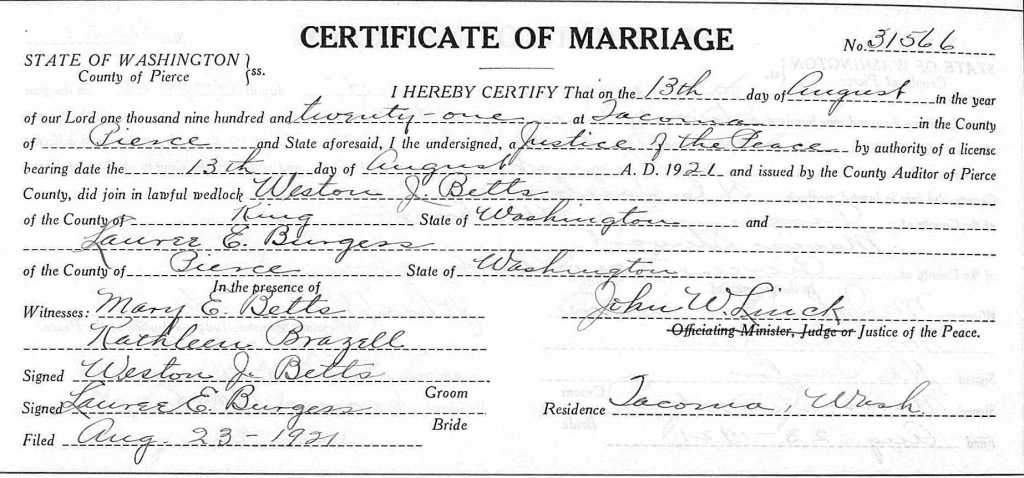 CERTIFICATE OF MARRIAGE
No. 31566
STATE OF WASHINGTON
County of Pierce } ss.
I HEREBY CERTIFY That on the 13th day of August in the year
of our Lord one thousand nine hundred and twenty-one at Tacoma in the County
of Pierce and State aforesaid, I the undersigned, a Justice of the Peace by authority of a license
bearing date the 13th day of August A. D. 1921 and issued by the County Auditor of Pierce
County, did join in lawful wedlock Weston J. Betts
of the County of King State of Washington and
Lauree E. Burgess
of the County of Pierce State of Washington
In the presence of
Witnesses: Mary E. Betts
John W. Linck
Kathleen Brazell
Officiating Minister, Judge or Justice of the Peace.
Signed Weston J. Betts
Groom
Signed Lauree E. Burgess
Bride
Residence Tacoma, Wash.
Filed Aug. 23-1921